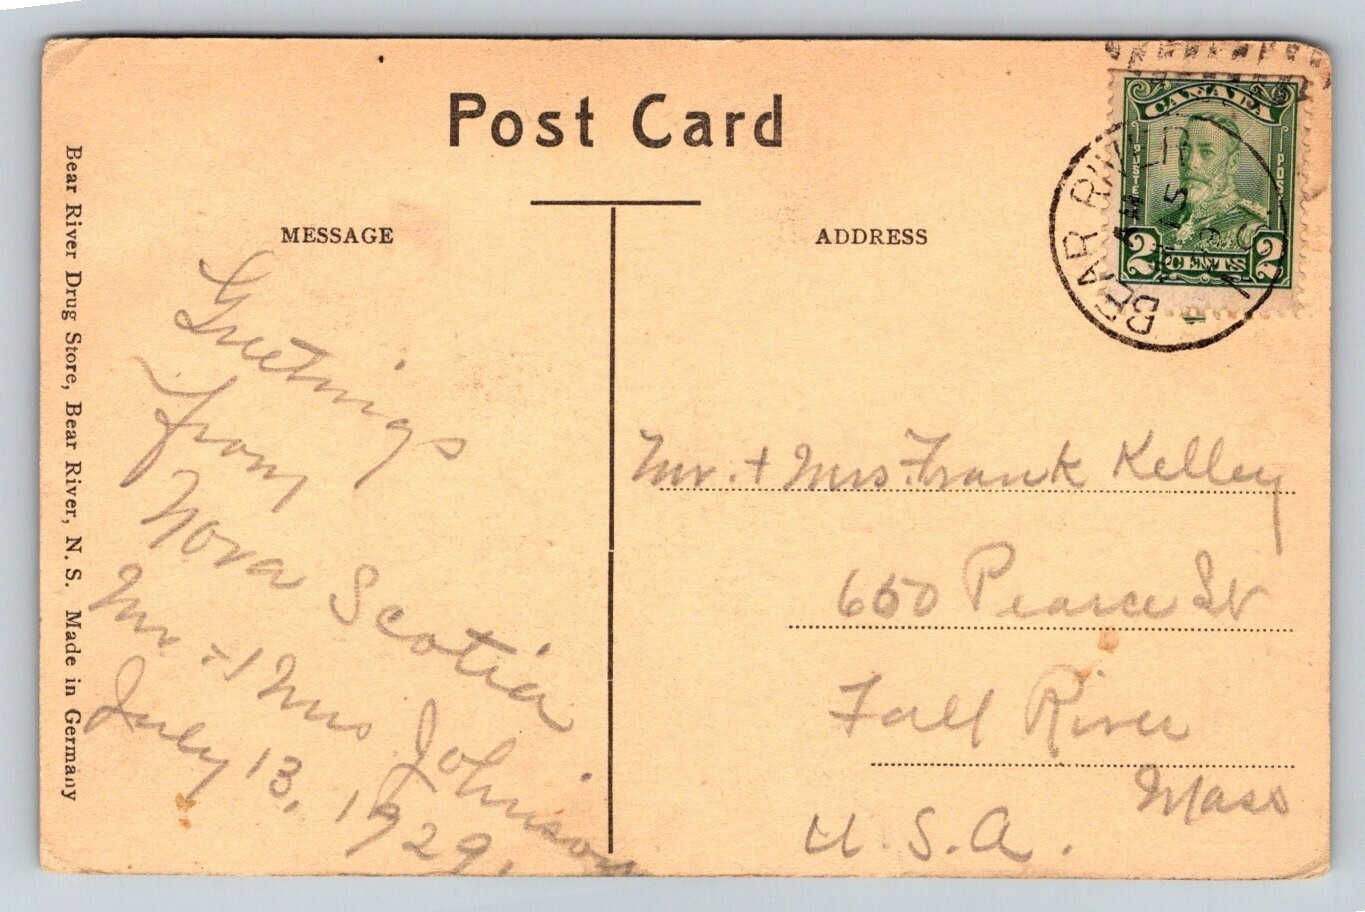 Post Card
MESSAGE
ADDRESS
Bear River Drug Store, Bear River, N. S. Made in Germany
CANADA
POSTES
POS
2 CENTS 2
BEAR RIVER
AM
15
N.S.
Greetings
from
Nova Scotia
Mr + Mrs Johnson
July 13, 1929.
Mr. + Mrs. Frank Kelley
650 Pearce St
Fall River
Mass
U.S.A.